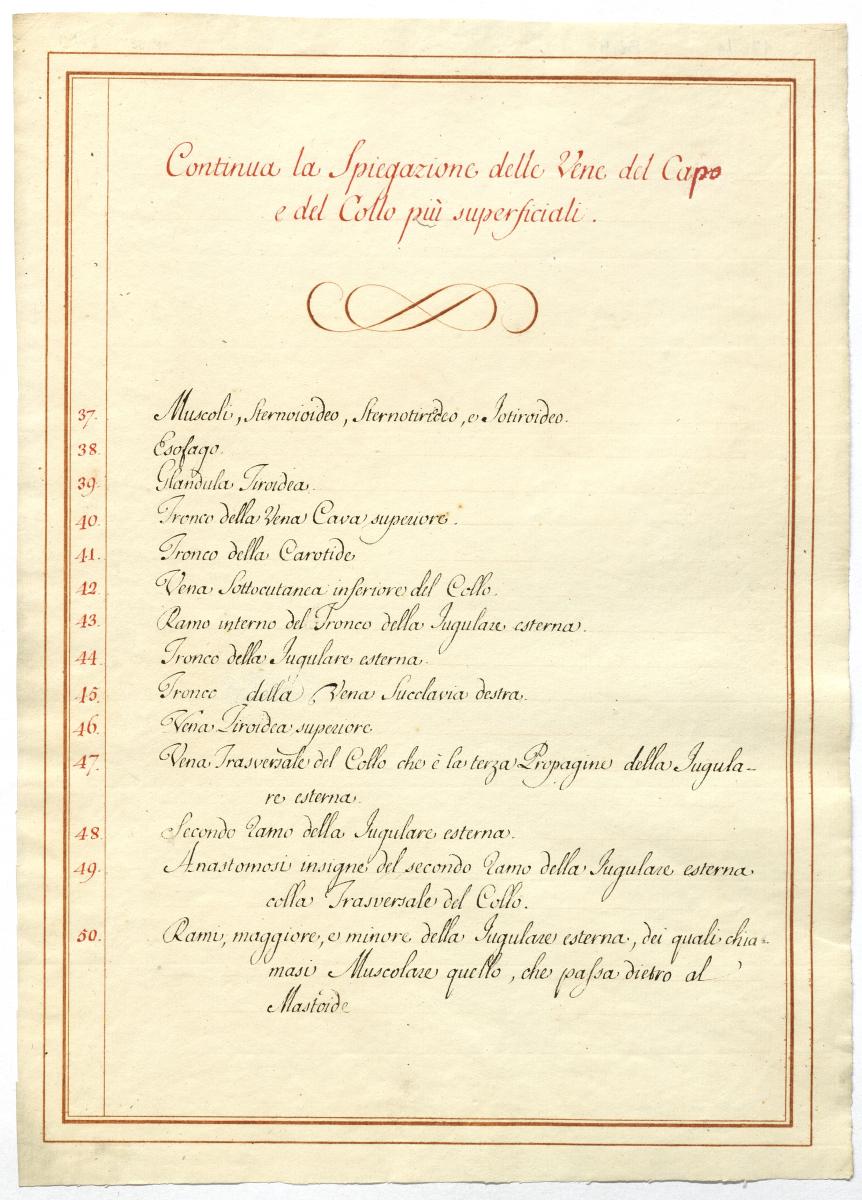 Continua la Spiegazione delle Vene del Capo
e del Collo più superficiali.
37. Muscoli, Sternoioideo, Sternotireideo, e Iotiroideo.
38. Esofago.
39. Glandula Tiroidea.
40. Tronco della Vena Cava superiore.
41. Tronco della Carotide
42. Vena Sottocutanea inferiore del Collo.
43. Ramo interno del Tronco della Jugulare esterna.
44. Tronco della Jugulare esterna.
45. Tronco della Vena Succlavia destra.
46. Vena Tiroidea superiore
47. Vena Trasversale del Collo che è la terza Propagine della Jugula-
re esterna.
48. Secondo Ramo della Jugulare esterna.
49. Anastomosi insigne del secondo Ramo della Jugulare esterna
colla Trasversale del Collo.
50. Rami, maggiore, e minore della Jugulare esterna, dei quali chia-
masi Muscolare quello, che passa dietro al
Mastoide